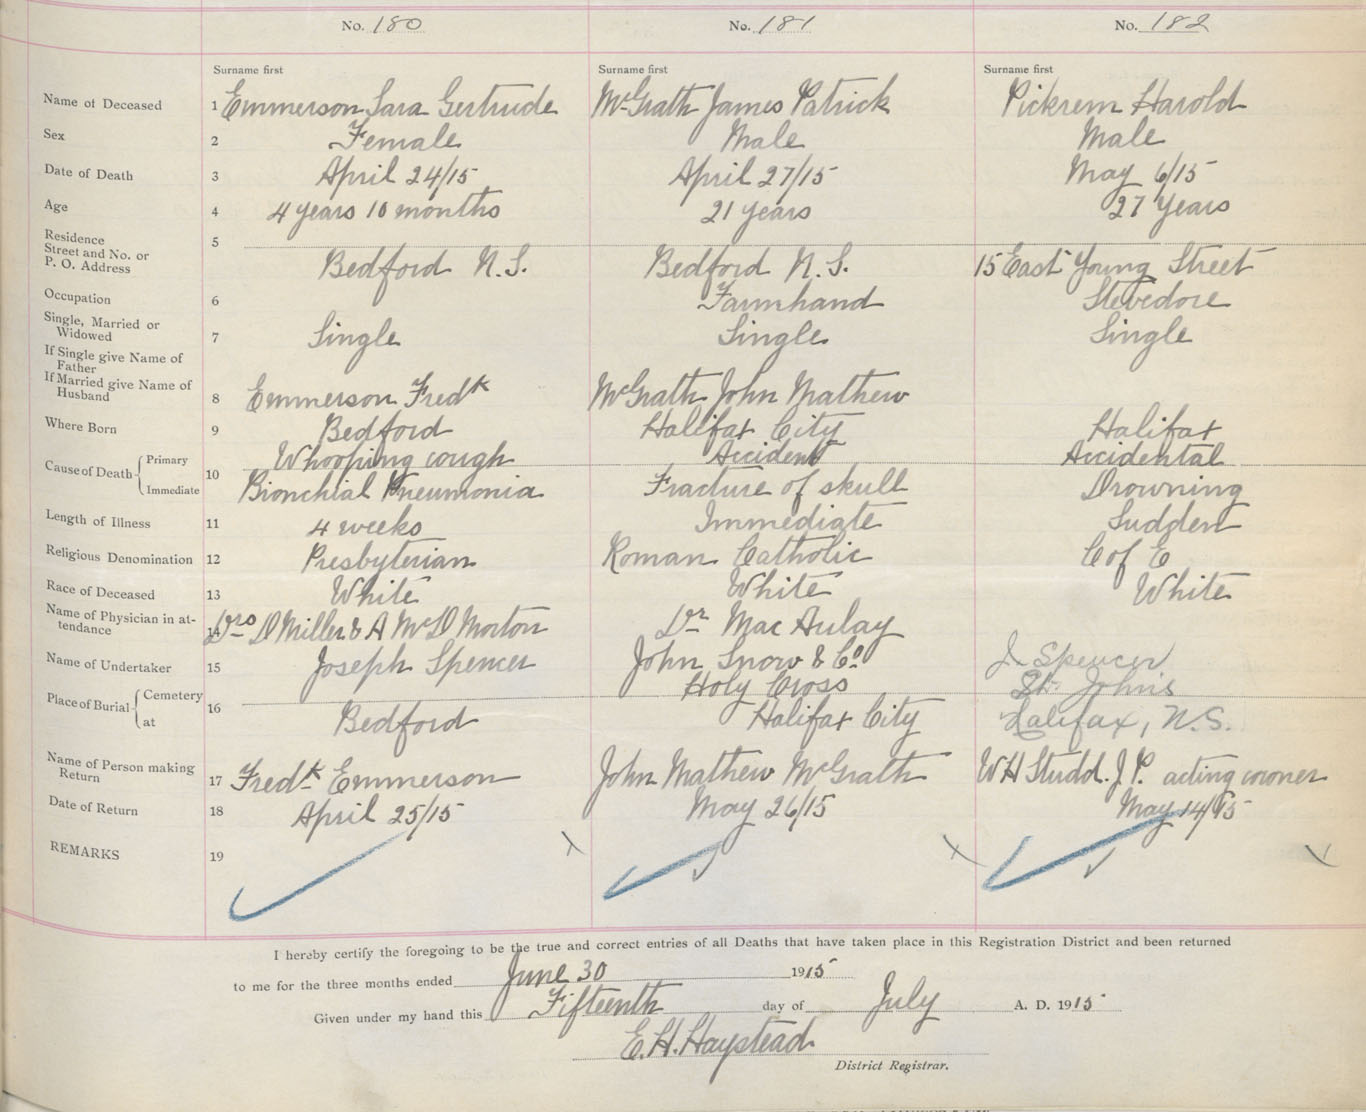 No. 180 No. 181 No. 182
Surname first Surname first Surname first
Name of Deceased 1 Emmerson Sara Gertrude McGrath James Patrick Pickrem Harold
Sex 2 Female Male Male
Date of Death 3 April 24/15 April 27/15 May 6/15
Age 4 4 years 10 months 21 years 27 years
Residence 5
Street and No. or
P. O. Address Bedford N.S. Bedford N.S. 15 East Young Street
Occupation 6 Farmhand Stevedore
Single, Married or
Widowed 7 Single Single Single
If Single give Name of
Father
If Married give Name of
Husband 8 Emmerson Fredk McGrath John Mathew
Where Born 9 Bedford Halifax City Halifax
Cause of Death Primary 10 Whooping cough Accident Accidental
Immediate Bronchial Pneumonia Fracture of skull Drowning
Length of Illness 11 4 weeks Immediate Sudden
Religious Denomination 12 Presbyterian Roman Catholic C of E
Race of Deceased 13 White White White
Name of Physician in at-
tendance 14 Drs D Miller & A McD Morton Dr Mac Aulay
Name of Undertaker 15 Joseph Spencer John Snow & Co. J Spencer
Place of Burial Cemetery 16 Holy Cross St. John's
at Bedford Halifax City Halifax, N.S.
Name of Person making
Return 17 Fredk Emmerson John Mathew McGrath W H Studd. J.P. acting coroner
Date of Return 18 April 25/15 May 26/15 May 14/15
REMARKS 19
I hereby certify the foregoing to be the true and correct entries of all Deaths that have taken place in this Registration District and been returned
to me for the three months ended June 30 1915
Given under my hand this Fifteenth day of July A. D. 1915
E.H. Haystead
District Registrar.